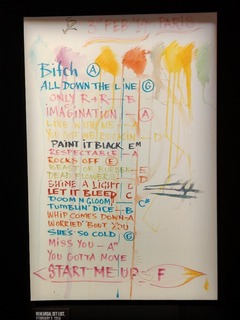 3RD FEB PARIS
Bitch A
ALL DOWN THE LINE G
ONLY R+R - B
IMAGINATION A
LIVE WITH ME - A
YOU GOT ME ROCKIN - D
PAINT IT BLACK EM
RESPECTABLE - A
ROCKS OFF E
BEAST OF BURDEN - E
DEAD FLOWERS - D
SHINE A LIGHT
LET IT BLEED C
DOOM N GLOOM
TUMBLIN' DICE - B
WHIP COMES DOWN A
WORRIED 'BOUT YOU
SHE'S SO COLD G
MISS YOU - AM
YOU GOTTA MOVE
START ME UP F
REHEARSAL SET LIST,